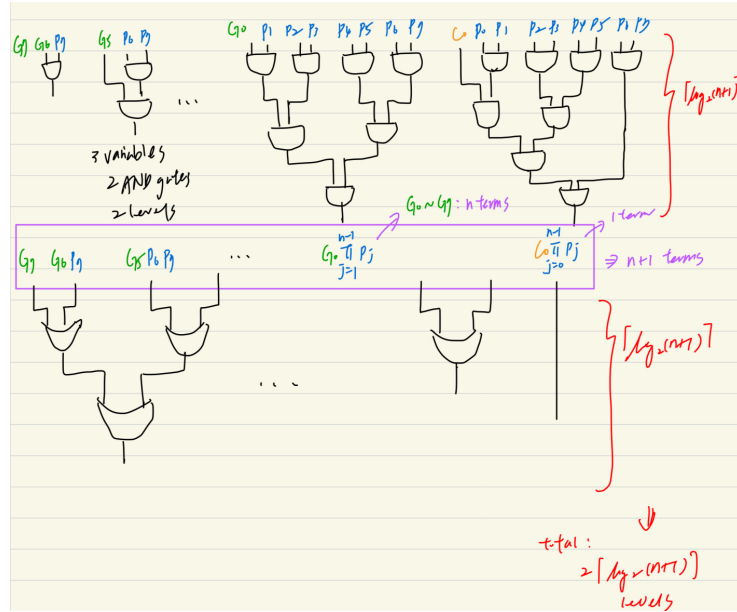 G7 G6 P7 G5 P6 P7 G0 P1 P2 P3 P4 P5 P6 P7 C0 P0 P1 P2 P3 P4 P5 P6 P7
⌈log₂(n+1)⌉
...
3 variables
2 AND gates
2 levels
G0~G7 : n terms
1 term
G7 G6P7 G5P6P7 ... G0 ∏_{j=1}^{n-1} Pj C0 ∏_{j=0}^{n-1} Pj ⇒ n+1 terms
⌈log₂(n+1)⌉
....
total:
2⌈log₂(n+1)⌉
levels